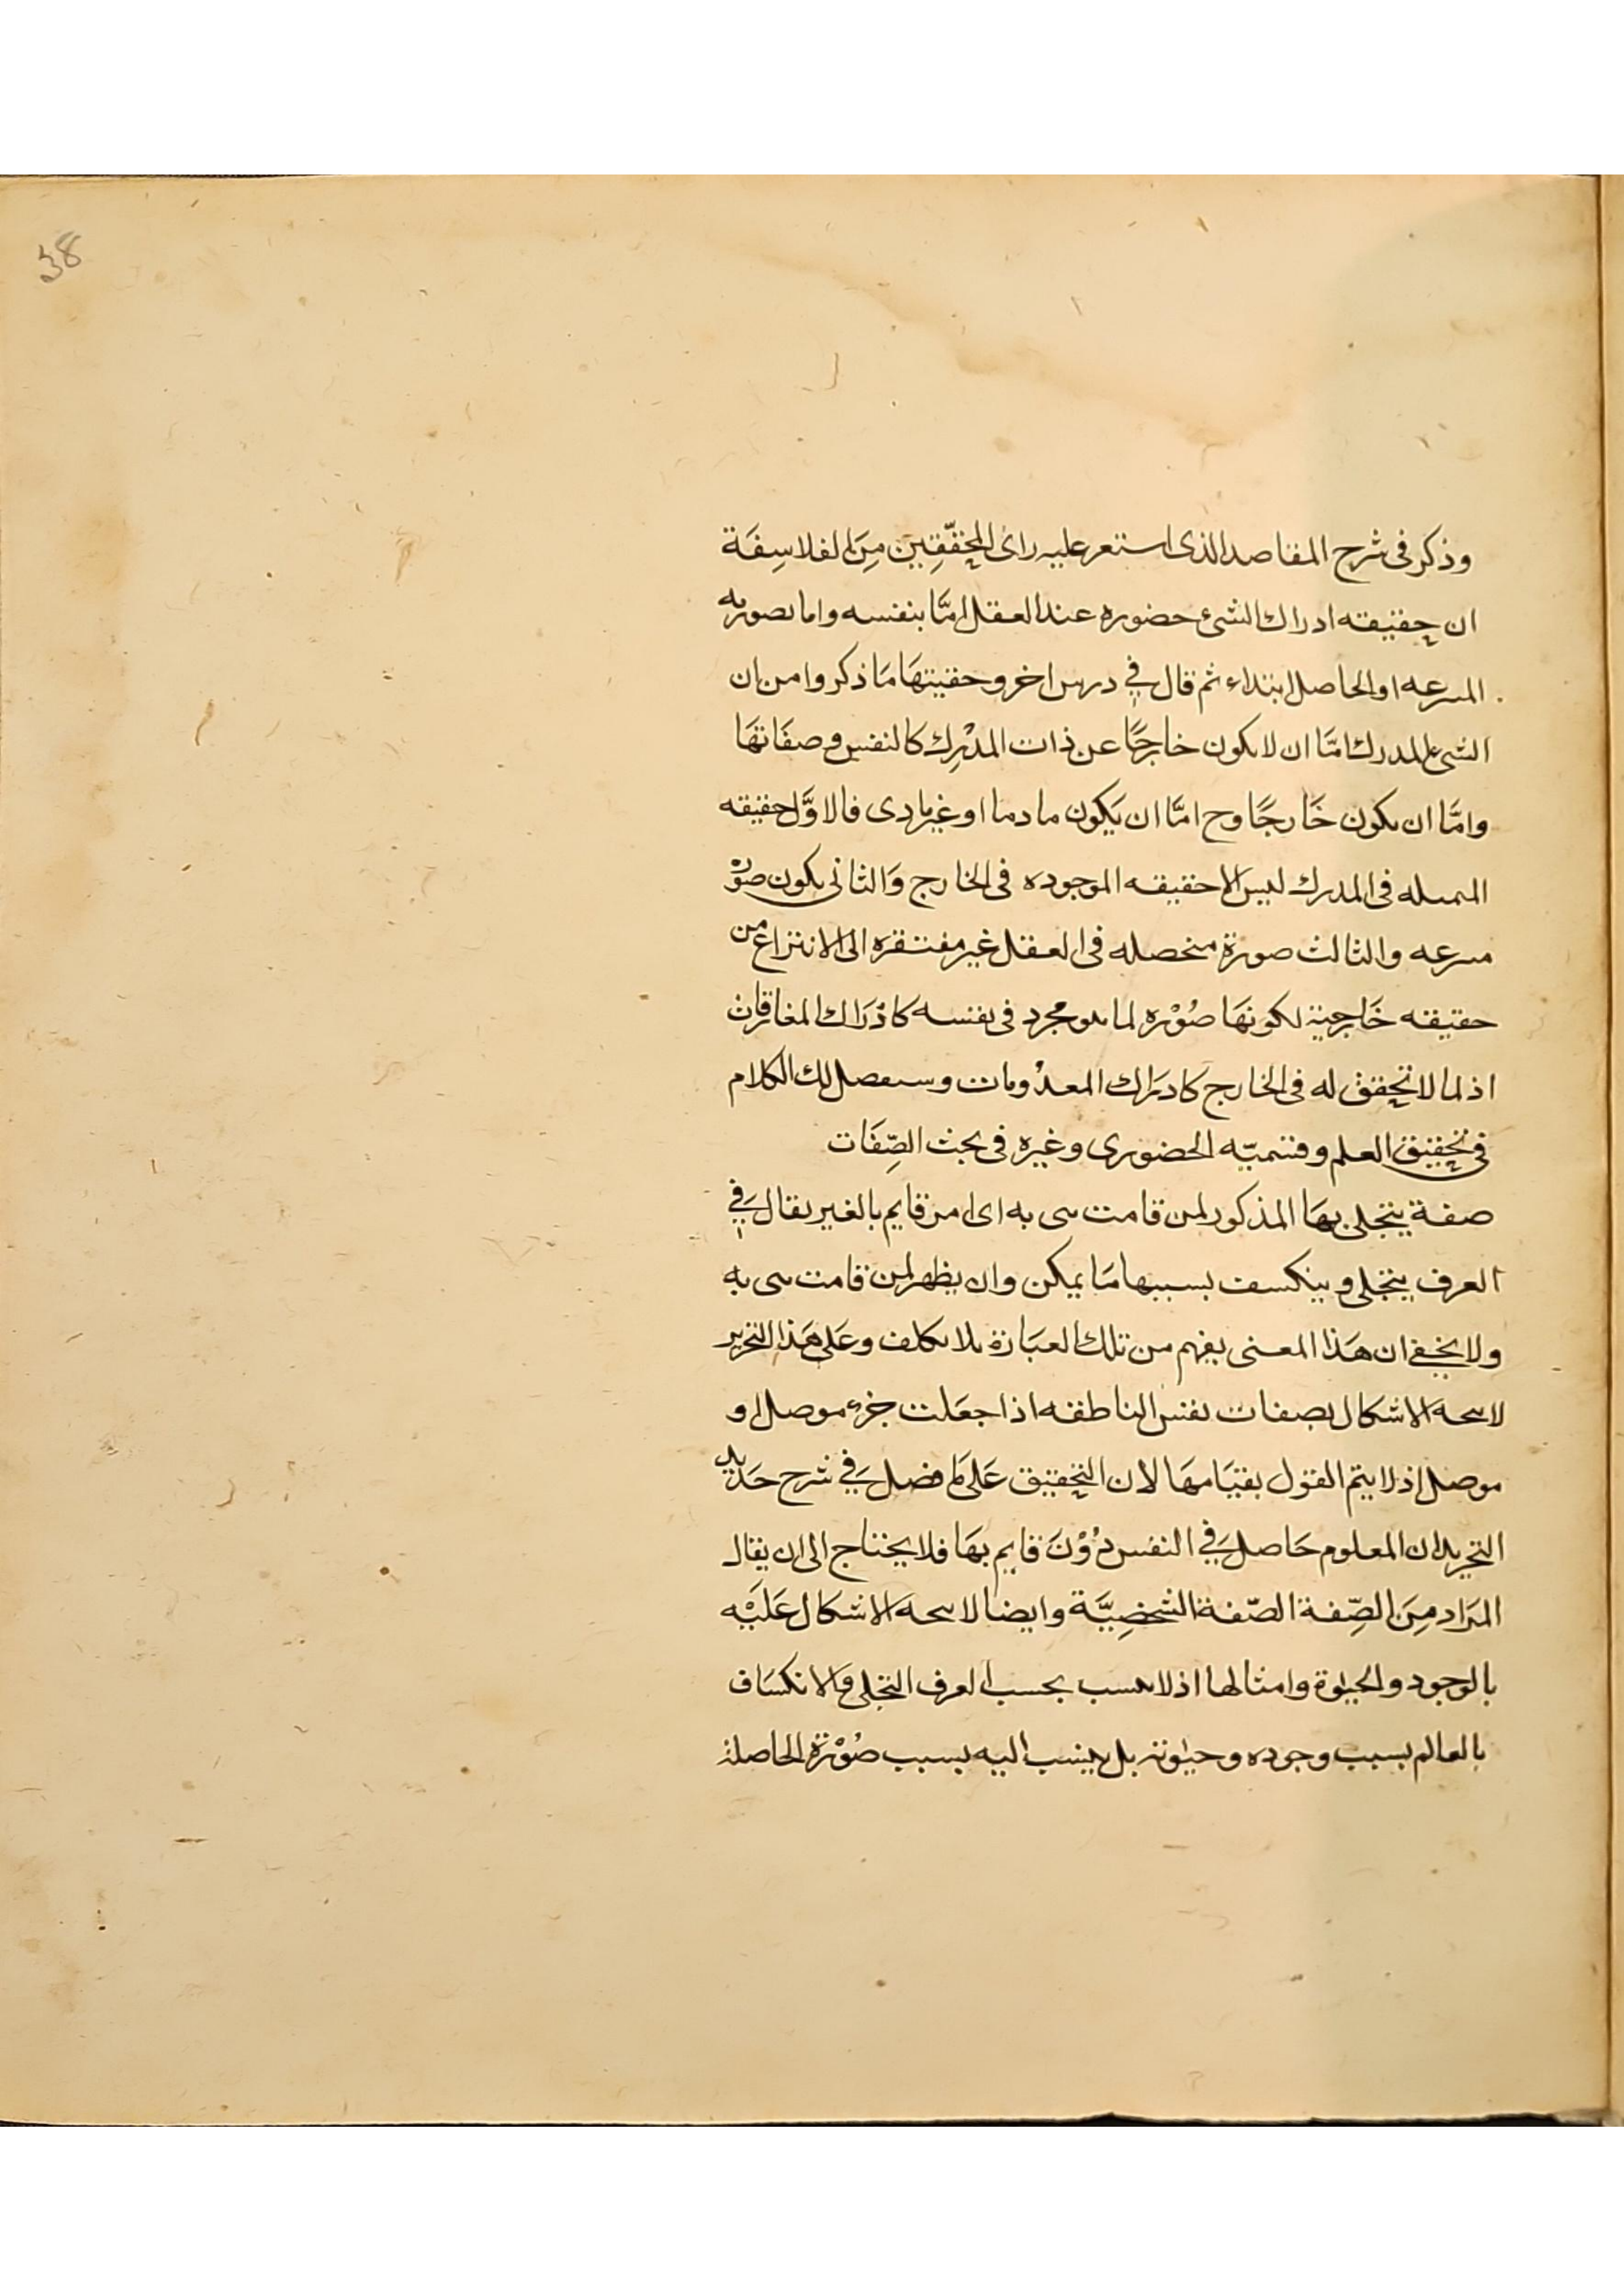 38
وذكر فى شرح المقاصد الذى استعر عليه راى المحقّقِين مِنَ الفلاسِفَة
ان حقيقته ادراك الشئ حضوره عند العقل امّا بنفسه واما بصوريه
المسرعه او الحاصل ابتداء ثم قال فى درس اخر وحقيتهَا مَا ذكروا من ان
الشئ المدرك امّا ان لا يكون خارجًا عن ذات المدْرِك كالنفس وصفَاتهَا
وامّا ان يكون خَارجًا وح امّا ان يَكون مادما او غير مادى فالاوَّل حقيقه
المىمىله فى المدرك ليس الا حقيقه الموجوده فى الخارج وَالثانى يكون صوْرة
مىىرعه والثالث صورة متحصله فى العقل غير مفتقره الى الانتزاع من
حقيقه خَارجية لكونهَا صُوْره لما هو مجرد فى نفسه كادْرَاك المفارقات
اذ لما لا تحقق له فى الخارج كادرَاك المعدُومات وسىفصل لك الكلام
فى تحقيق العلم وقتميّه الحضورى وغيره فى بحث الصِّفَات
صفة يتجلى بهَا المذكور لمن قامت هى به اى امر قايم بالغير يقال فِى
العرف يتجلى وينكسف بسببها مَا يمكن وان يظهر لمن قامت هى به
ولا يخفى ان هَذا المعنى يفهم من تلك العبَارة بلا تكلف وعَلى هَذا التحرير
لا ىىحه الاشكال بصفات نفس الناطقه اذا جعَلت جزء موصل او
موصل اذ لا يتم القول بقيَامهَا لان التحقيق عَلى مَا فصل فِى شرح حَديد
التجريد ان المعلوم حَاصل فِى النفس دُوْنَ قايم بهَا فلا يحتاج الى ان يقال
المرَاد مِنَ الصِّفة الصّفة الشخصِيَّة وايضا لا ىىحه الاشكال عَلَيْه
بالوجود والحيٰوة وامثالها اذ لا ىىسب بحسب العرف التجلى والانكسَاف
بالعالم بسبب وجوده وحيٰوته بل ينسب اليه بسبب صُوْرَة الحاصلة